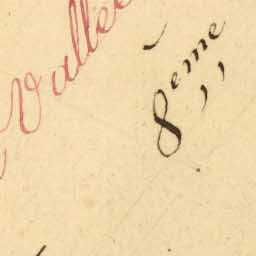 Vallée
8eme